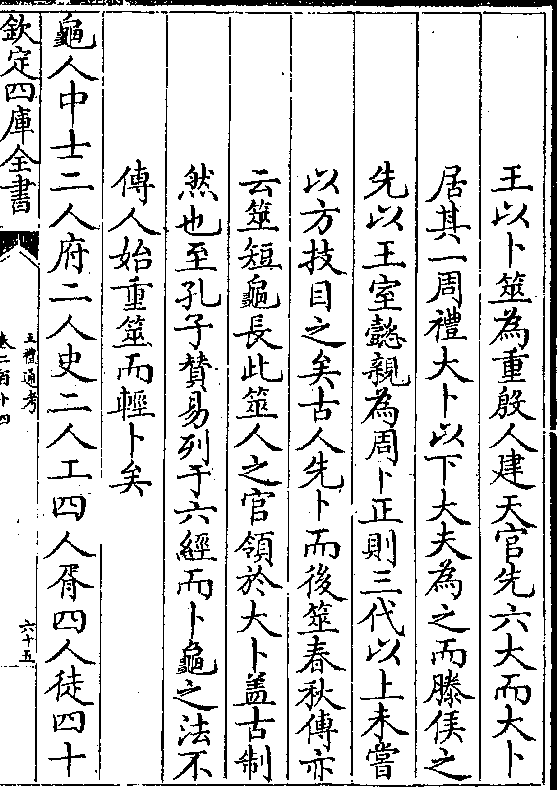 王以卜筮為重殷人建天官先六大而大卜
居其一周禮大卜以下大夫為之而滕侯之
先以王室懿親為周卜正則三代以上未嘗
以方技目之矣古人先卜而後筮春秋傳亦
云筮短龜長此筮人之官領於大卜蓋古制
然也至孔子賛易列于六經而卜龜之法不
傳人始重筮而輕卜矣
龜人中士二人府二人史二人工四人胥四人徒四十
欽定四庫全書
五禮通考
卷二百十四
六十五